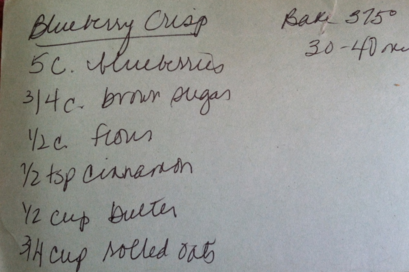 Blueberry Crisp
Bake 375°
30-40 m
5 c. blueberries
3/4 c. brown sugar
1/2 c. flour
1/2 tsp cinnamon
1/2 cup butter
3/4 cup rolled oats